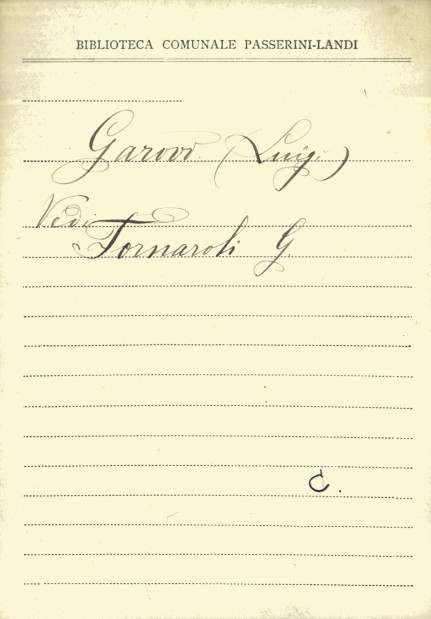 BIBLIOTECA COMUNALE PASSERINI-LANDI
Garovo (Luigi)
Vedi
Tornaroli G.
C.